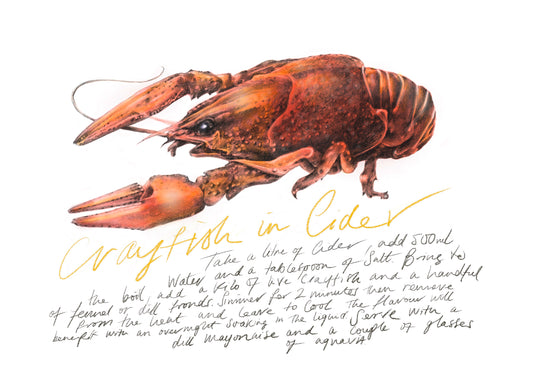 Crayfish in Cider
Take a litre of Cider, add 500ml
Water and a tablespoon of Salt. Bring to
the boil add a Kilo of live Crayfish and a handful
of fennel or dill fronds. Simmer for 2 minutes then remove
from the heat and leave to Cool The flavour will
benefit with an overnight soaking in the liquid Serve with a
dill mayonaise and a couple of glasses
of aquavit